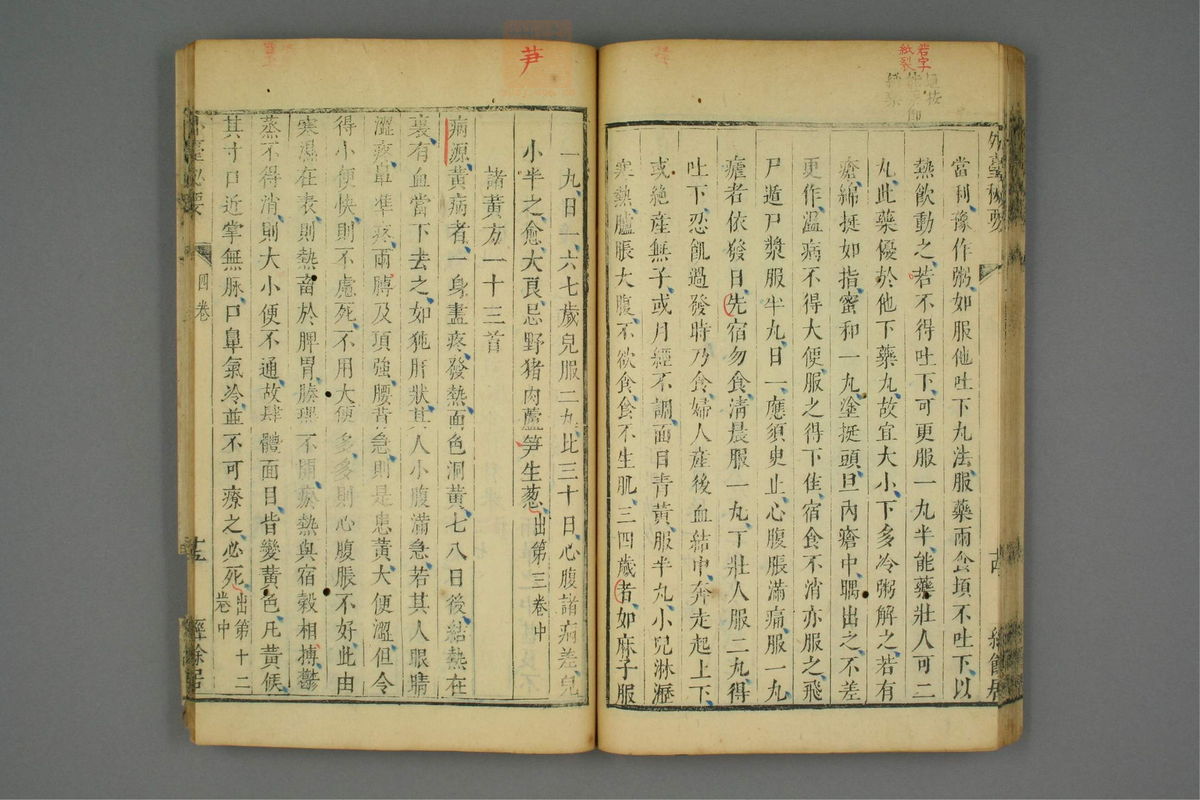 岩字
紙裂
外臺秘要
當預作粥如服他吐下丸法服藥兩食頃不吐下以
熱飲動之若不得吐下可更服一丸半能藥壯人可二
丸此藥優於他下藥丸故宜大小下多冷粥解之若有
瘡綿挺如指蜜和一丸塗挺頭且內瘡中隅出之不差
更作溫病不得大便服之得下佳宿食不消亦服之飛
尸遁尸漿服半丸日一應須臾止心腹脹滿痛服一丸
瘧者依發日先宿勿食清晨服一丸丁壯人服二丸得
吐下忍飢過發時乃食婦人產後血結中奔走起上下
或絕產無子或月經不調面目青黃服半丸小兒淋瀝
寒熱臚脹大腹不欲食食不生肌三四歲者如麻子服
經餘居
芛
一丸日一六七歲兒服二丸比三十日心腹諸病差兒
小半之愈大良忌野猪肉蘆笋生葱出第三卷中
諸黃方一十三首
病源黃病者一身盡疼發熱面色洞黃七八日後結熱在
裏有血當下去之如㹠肝狀其人小腹滿急若其人眼睛
澀疼鼻準疼兩膊及項強腰背急則是患黃大便澀但令
得小便快則不慮死不用大便多多則心腹脹不好此由
寒濕在表則熱畜於脾胃腠理不開瘀熱與宿穀相搏鬱
蒸不得消則大小便不通故肆體面目皆變黃色凡黃候
其寸口近掌無脉口鼻氣冷並不可療之必死出第十二
卷中
外臺秘要
四卷
十五
經餘居